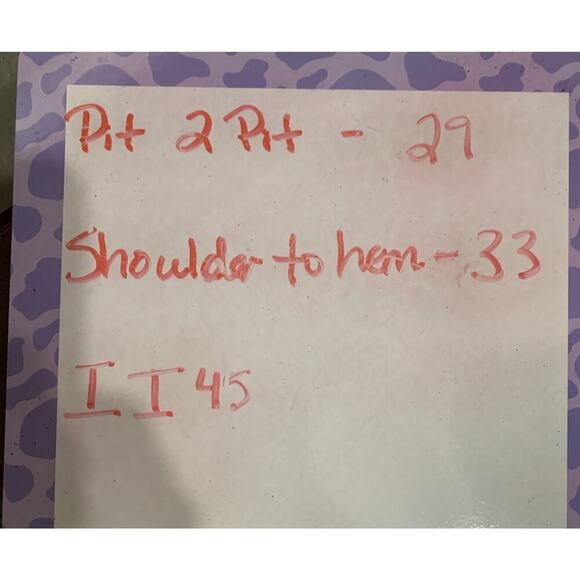 Pit 2 Pit - 29
Shoulder to hem - 33
II45